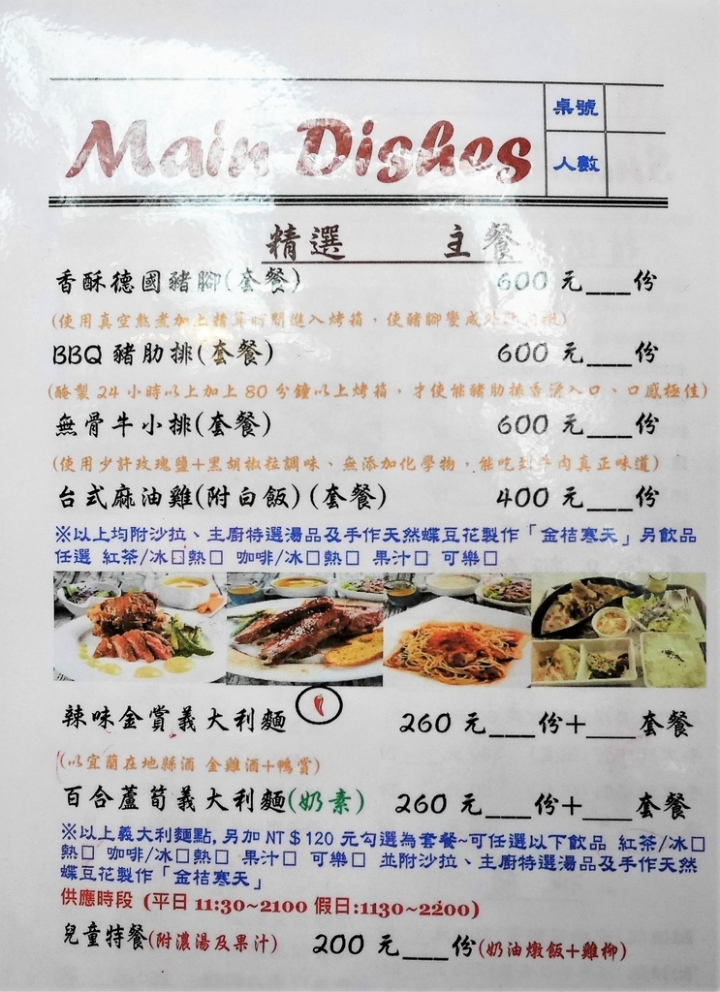 Main Dishes
桌號
人數
精選 主餐
香酥德國豬腳(套餐) 600 元___份
(使用真空熟煮加上精算時間進入烤箱，使豬腳變成外
BBQ 豬肋排(套餐) 600 元___份
(醃製 24 小時以上加上 80 分鐘以上烤箱，才使能豬肋排香滑入口、口感極佳)
無骨牛小排(套餐) 600 元___份
(使用少許玫瑰鹽+黑胡椒粒調味、無添加化學物，能吃到牛肉真正味道)
台式麻油雞(附白飯)(套餐) 400 元___份
※以上均附沙拉、主廚特選湯品及手作天然蝶豆花製作「金桔寒天」另飲品
任選 紅茶/冰□熱□ 咖啡/冰□熱□ 果汁□ 可樂□
辣味金賞義大利麵 260 元___份+___套餐
(以宜蘭在地縣酒 金雞酒+鴨賞)
百合蘆筍義大利麵(奶素) 260 元___份+___套餐
※以上義大利麵點,另加 NT$120 元勾選為套餐~可任選以下飲品 紅茶/冰□
熱□ 咖啡/冰□熱□ 果汁□ 可樂□ 並附沙拉、主廚特選湯品及手作天然
蝶豆花製作「金桔寒天」
供應時段 (平日 11:30~2100 假日:1130~2200)
兒童特餐(附濃湯及果汁) 200 元___份(奶油燉飯+雞柳)